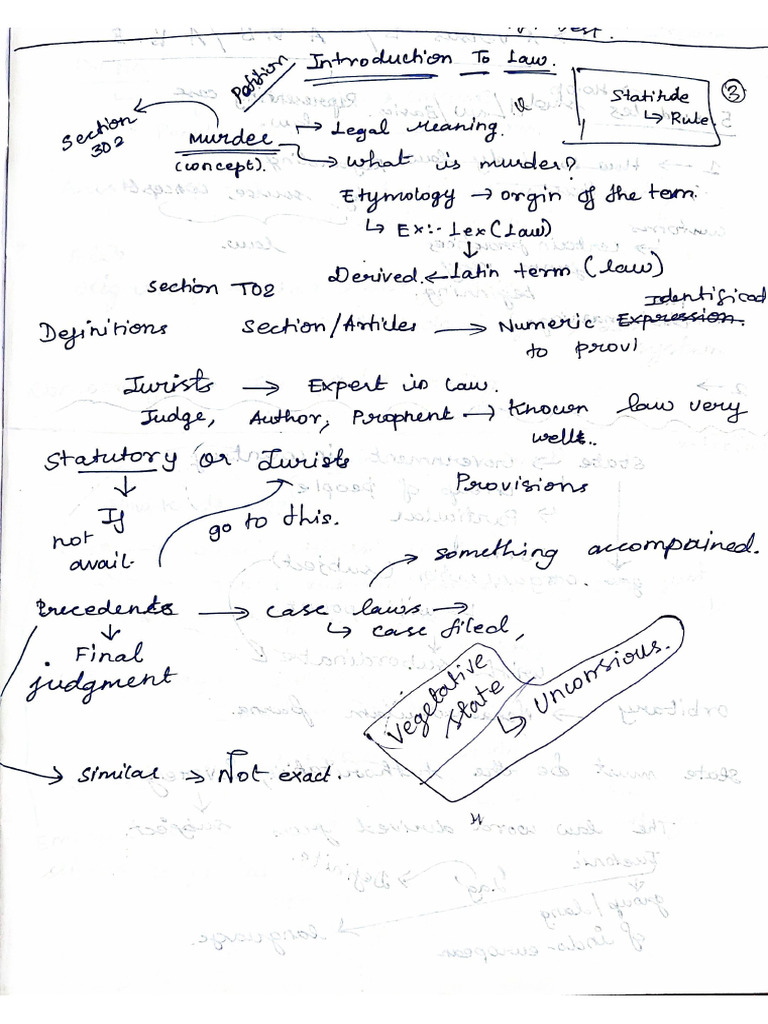 Introduction To Law.
Petition
③
Statitde
↳ Rule
Section 302
Murder → Legal Meaning.
(concept). → what is murder?
Etymology → orgin of the term
↳ Ex:- Lex (Law)
↓
Derived. ← Latin term (law)
Section T02
Identificad
Definitions Section/Articles → Numeric Expression.
to provi
Jurists → Expert in Law.
Judge, Author, Prophent → Known law very
well..
Statutory or Jurists
Provisions
↓
If
not
avail.
go to this.
→ something accompained.
Precedents → case laws →
↳ case filed,
↓
Final
judgment
Vegetative
State
↳ Unconsious.
→ Similar → Not exact.